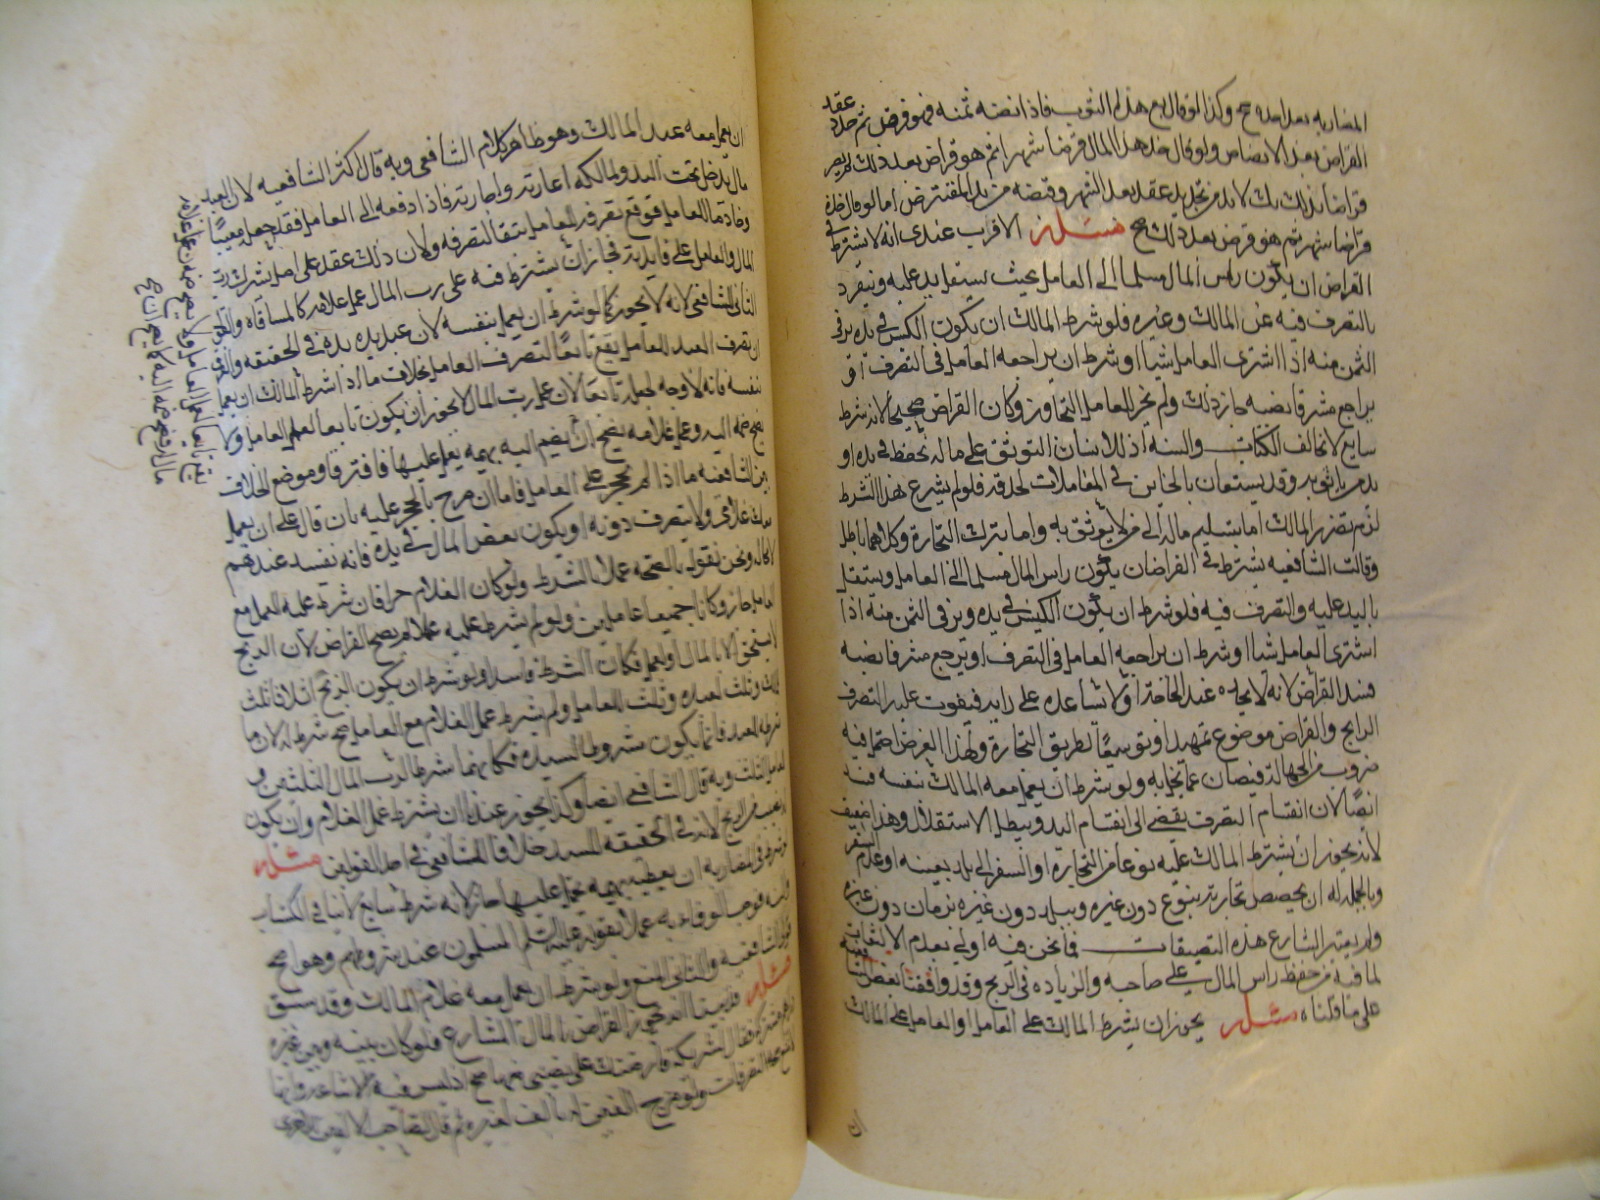 المضاربه بعد امده صح وكذا لو قال بع هذا الثوب فاذا انضه ثمنه فهو قرض ثم جدد عقد
القراض بعد الانضاض ولو قال خذ هذا المال قرضا شهرا ثم هو قراض بعد ذلك لم يصر
قراضا بذلك بل لا بد من تجديد عقد بعد الشهر وقبضه من يد المقترض اما لو قال خذه
قراضا شهرا ثم هو قرض بعد ذلك صح مسئله الاقرب عندى انه لا يشترط فى
القراض ان يكون راس المال مسلما الى العامل بحيث يستقل يده عليه وينفرد
بالتصرف فيه عن المالك وغيره فلو شرط المالك ان يكون الكيس فى يده يوفى
الثمن منه اذا اشترى العامل شيا او شرط ان يراجعه العامل فى التصرف او
يراجع مشرفا نصبه جاز ذلك ولم يجز للعامل التجاوز وكان القراض صحيحا لانه شرط
سايغ لا يخالف الكتاب والسنه اذ للانسان التوثق على ماله بحفظه فى يده او
يد من يثق به وقد يستعان بالخاين فى المعاملات لحذقه فلو لم يشرع هذا الشرط
لزم تضرر المالك اما بتسليم ماله الى من لا يوثق به واما بترك التجارة وكلاهما باطل
وقالت الشافعيه يشترط فى القراض ان يكون راس المال مسلما الى العامل ويستقل
باليد عليه والتصرف فيه فلو شرط ان يكون الكيس فى يده ويوفى الثمن منه اذا
اشترى العامل شيا او شرط ان يراجعه العامل فى التصرف او يراجع مشرفا نصبه
فسد القراض لانه لا يجده عند الحاجة او لا يساعده على رايه فيفوت عليه التصرف
الرابح والقراض موضوع تمهيدا وتوسيعا لطريق التجارة ولهذا الغرض احتمل فيه
ضروب من الجهالة فيصان عما يخل به ولو شرط ان يعمل معه المالك بنفسه فسد
ايضا لان انقسام التصرف يفضى الى انقسام اليد ويبطل الاستقلال وهذا ضعيف
لانه يجوز ان يشترط المالك عليه نوعا من التجارة او السفر الى بلد بعينه او عدم السفر
وبالجمله له ان يخصص تجارته بنوع دون غيره وببلد دون غيره بزمان دون غيره
ولم يعتبر الشارع هذه التضيقات فما نحن فيه اولى بعدم الالتفات
لما فيه من حفظ راس المال على صاحبه والزياده فى الربح وقد وافقنا بعض
على ما قلناه مسئله يجوز ان يشرط المالك على العامل او العامل على المالك
ان
ان يعمل معه عبد المالك وهو ظاهر كلام الشافعى وبه قال اكثر الشافعيه لان العبد
مال يدخل تحت اليد ولمالكه اعارته واجارته فاذا دفعه الى العامل فقد جعله معينا
وخادما للعامل فوقع تصرفه للعامل تبعا لتصرفه ولان ذلك عقد على اصل يشترك رب
المال والعامل على فايدته فجاز ان يشترط فيه على رب المال عمل غلامه كالمساقاه
الثانى للشافعى انه لا يجوز كما لو شرط ان يعمل بنفسه لان عبد يده يده فى الحقيقه
ان تصرف العبد للعامل يقع تابعا لتصرف العامل بخلاف ما اذا شرط المالك ان يعمل
بنفسه فانه لا وجه لجعله تابعا لان عمل رب المال لا يجوز ان يكون تابعا لعمل العامل ولا
يصح ضمه اليه وعمل غلامه يصح ان يضم اليه بهيمه يعمل عليها فافترقا وموضع الخلاف
بين الشافعيه ما اذا لم يحجر على العامل فاما ان صرح بالحجر عليه بان قال على ان يعمل
معك غلامى ولا يتصرف دونه او يكون بعض المال فى يده فانه يفسد عندهم
لا محالة ونحن نقول بالصحه عملا بالشرط ولو كان الغلام حرا فان شرط عليه العمل مع
العامل جاز وكانا جميعا عاملين ولو لم يشرط عليه عملا لم يصح القراض لان الربح
لا يستحق الا بالمال او العمل فكان الشرط فاسدا ولو شرط ان يكون الربح اثلاثا ثلث
للمالك وثلث لعبده وثلث للعامل ولم يشرط عمل الغلام مع العامل صح شرطه لان ما
شرطه للعبد فانما يكون مشروطا لسيده فكانهما شرطا لرب المال الثلثين و
للعامل الثلث وبه قال الشافعى ايضا وكذا يجوز عندنا ان يشترط عمل الغلام وان يكون
له بعض الربح لانه فى الحقيقه للسيد خلافا للشافعى فى احد القولين مسئله
لو شرط فى المضاربه ان يعطيه بهيمه يحمل عليها جاز لانه شرط سايغ لا ينافى الكتاب
والسنه فوجب الوفاء به عملا بقوله عليه السلم المسلمون عند شروطهم وهو اصح
قولى الشافعيه والثانى المنع ولو شرط ان يعمل معه غلام المالك وقد سبق
مسئله قد بينا انه يجوز القراض بالمال المشاع فلو كان بينه وبين غيره
دراهم مشتركه فقال لشريكه قارضتك على نصيبى منها صح اذ ليس فيه الا الاشاعه وانها
لا تمنع صحه التصرفات ولو مزج الفين له بالف لغيره ثم قال لصاحب الالف